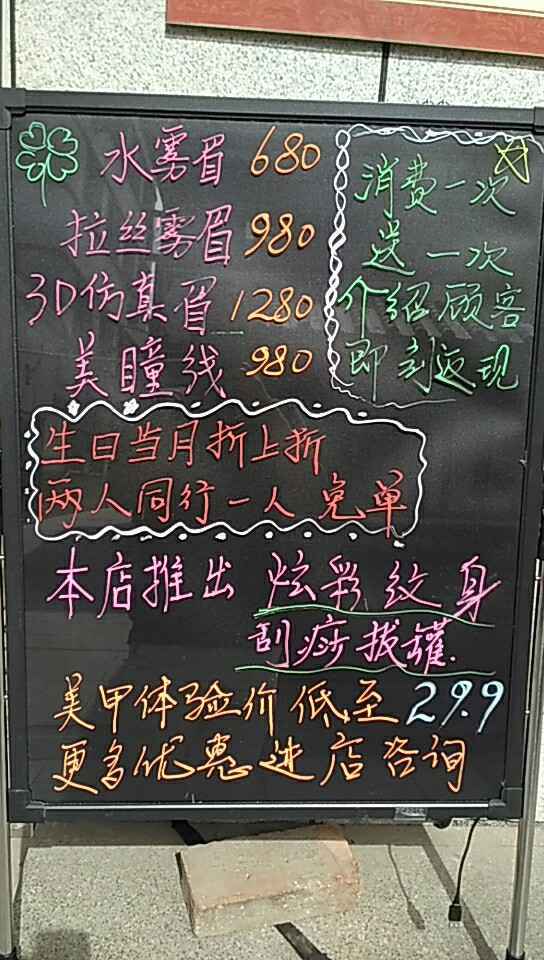 水雾眉 680
拉丝雾眉 980
3D仿真眉 1280
美瞳线 980
消费一次
送一次
介绍顾客
即刻返现
生日当月折上折
两人同行一人免单
本店推出 炫彩纹身
刮痧拔罐.
美甲体验价低至29.9
更多优惠进店咨询